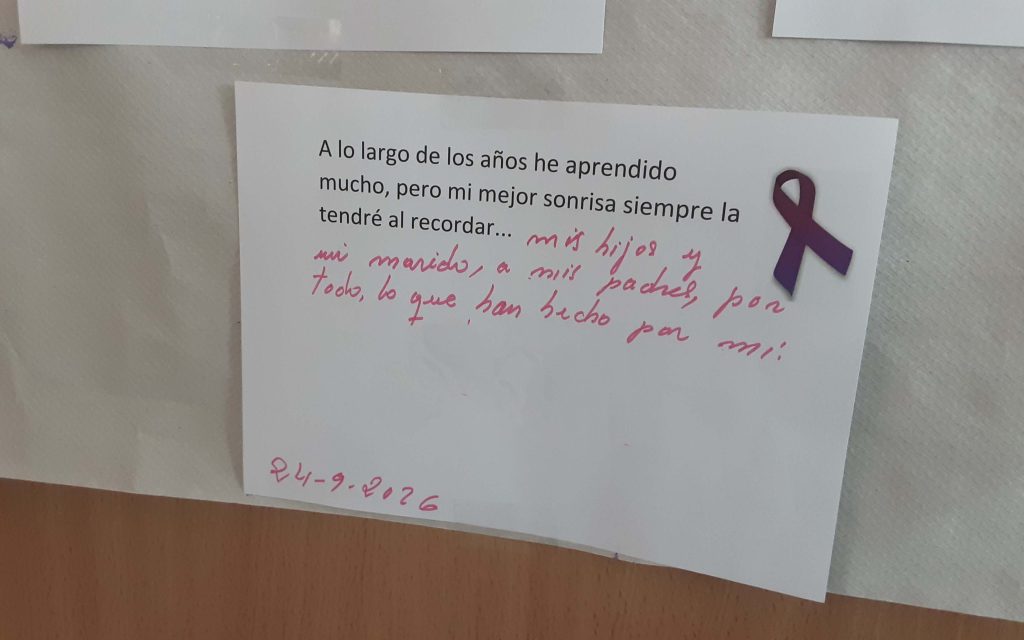 A lo largo de los años he aprendido
mucho, pero mi mejor sonrisa siempre la
tendré al recordar... mis hijos y
mi marido, a mis padres, por
todo, lo que han hecho por mi.
24-9-2026